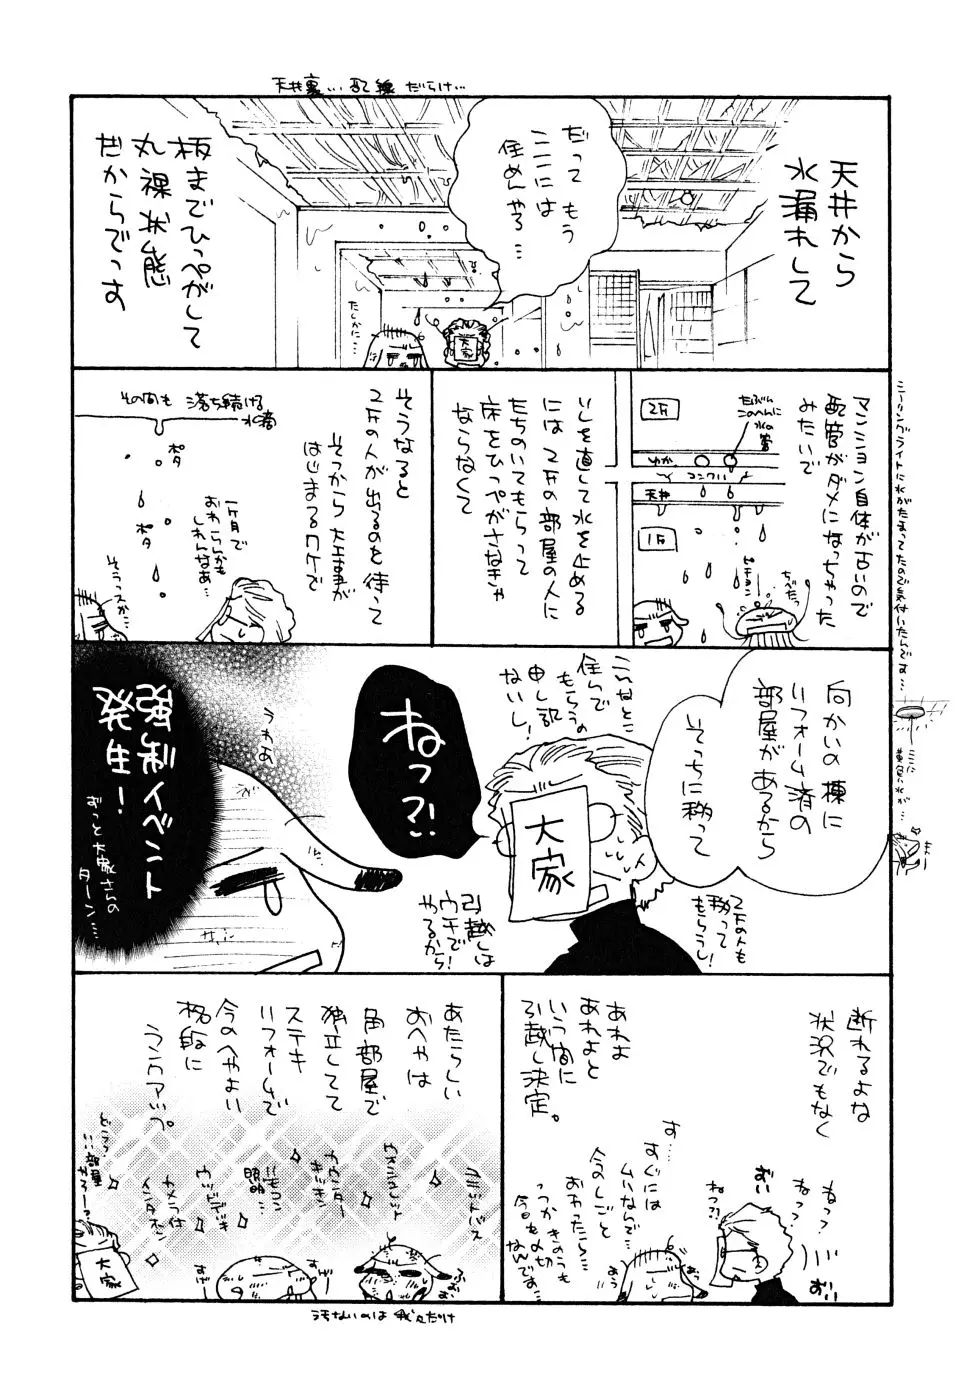 天井裏…配線だらけ…
天井から
水漏れして
だって もう
ここには
住めんやろ…
板までひっぺがして
丸裸状態
だからでっす
たしかに…
大家
マンション自体が古いので
配管がダメになっちゃった
みたいで
2F
たぶん
このへんに
水の管
ゆか
コンクリ
天井
1F
ピチョン
ちべたっ
シーリングライトに水がたまってたので気付いたんです…
ここに
黄色い水が…
いしを直して水を止める
には 2Fの部屋の人に
たちのいてもらって
床をひっぺがさなきゃ
ならなくて
そうなると
2Fの人が出るのを待って
そっから大工事が
はじまるワケで
その間も 落ち続ける
水滴
ポタ
ポタ
一ヶ月で
おわらんかも
しれんなあ…
そうっスか…
向かいの棟に
リフォーム済の
部屋があるから
そっちに移って
こんなとこ
住んで
もらうの
申し訳
ないし!
大家
2Fの人も
移って
もらうし!
引越しは
ウチで
やるから!
ねっ?!
うわあ
強制イベント
発生!
ずっと大家さんの
ターン…
断れるよな
状況でもなく
ねっ?
ねっ?
おい
おい
ねっ?!
あれよ
あれよと
いう間に
引越し決定。
す……
すぐには
ムリなんで…
今のしごと
おわったら…
つっかきのうも
今日も〆切
なんです…
あう
あたらしい
おへやは
角部屋で
独立してて
ステキ
リフォームで
今のへやよい
格段に
ランクアップ。
ウォシュレット
カウンター
キッチン
リモコン
照明…
ウッドデッキ
カメラ付
インタホン
どこっ
…部屋
やろー?
大家
すげー
汚ないのは 我々だけ